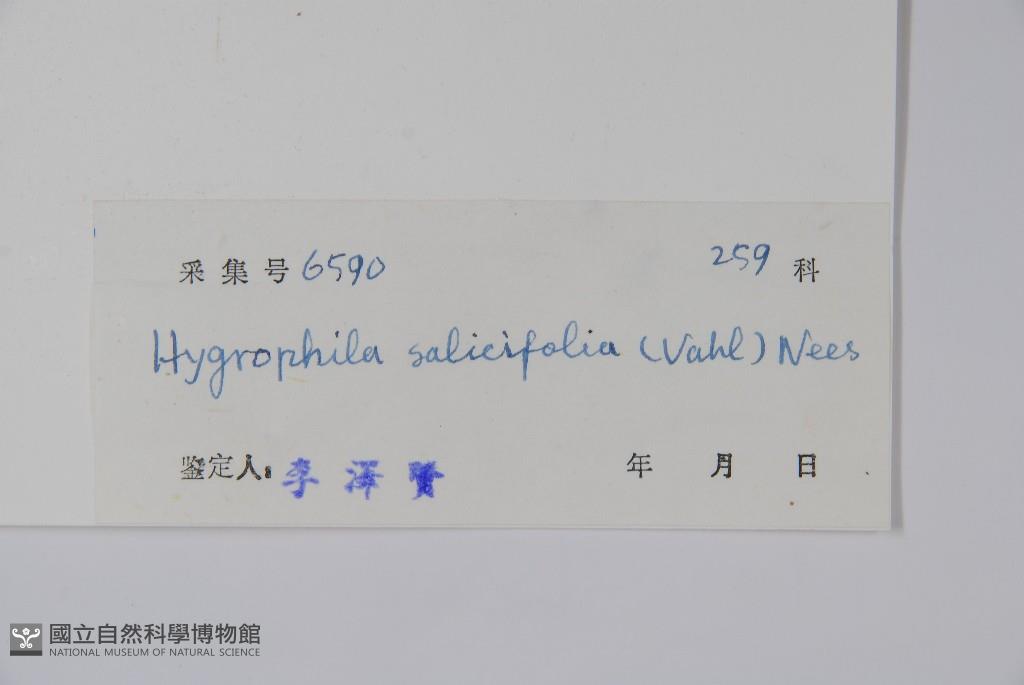 采集号 6590 259 科
Hygrophila salicifolia (Vahl) Nees
鉴定人: 李泽贤 年 月 日
國立自然科學博物館
NATIONAL MUSEUM OF NATURAL SCIENCE